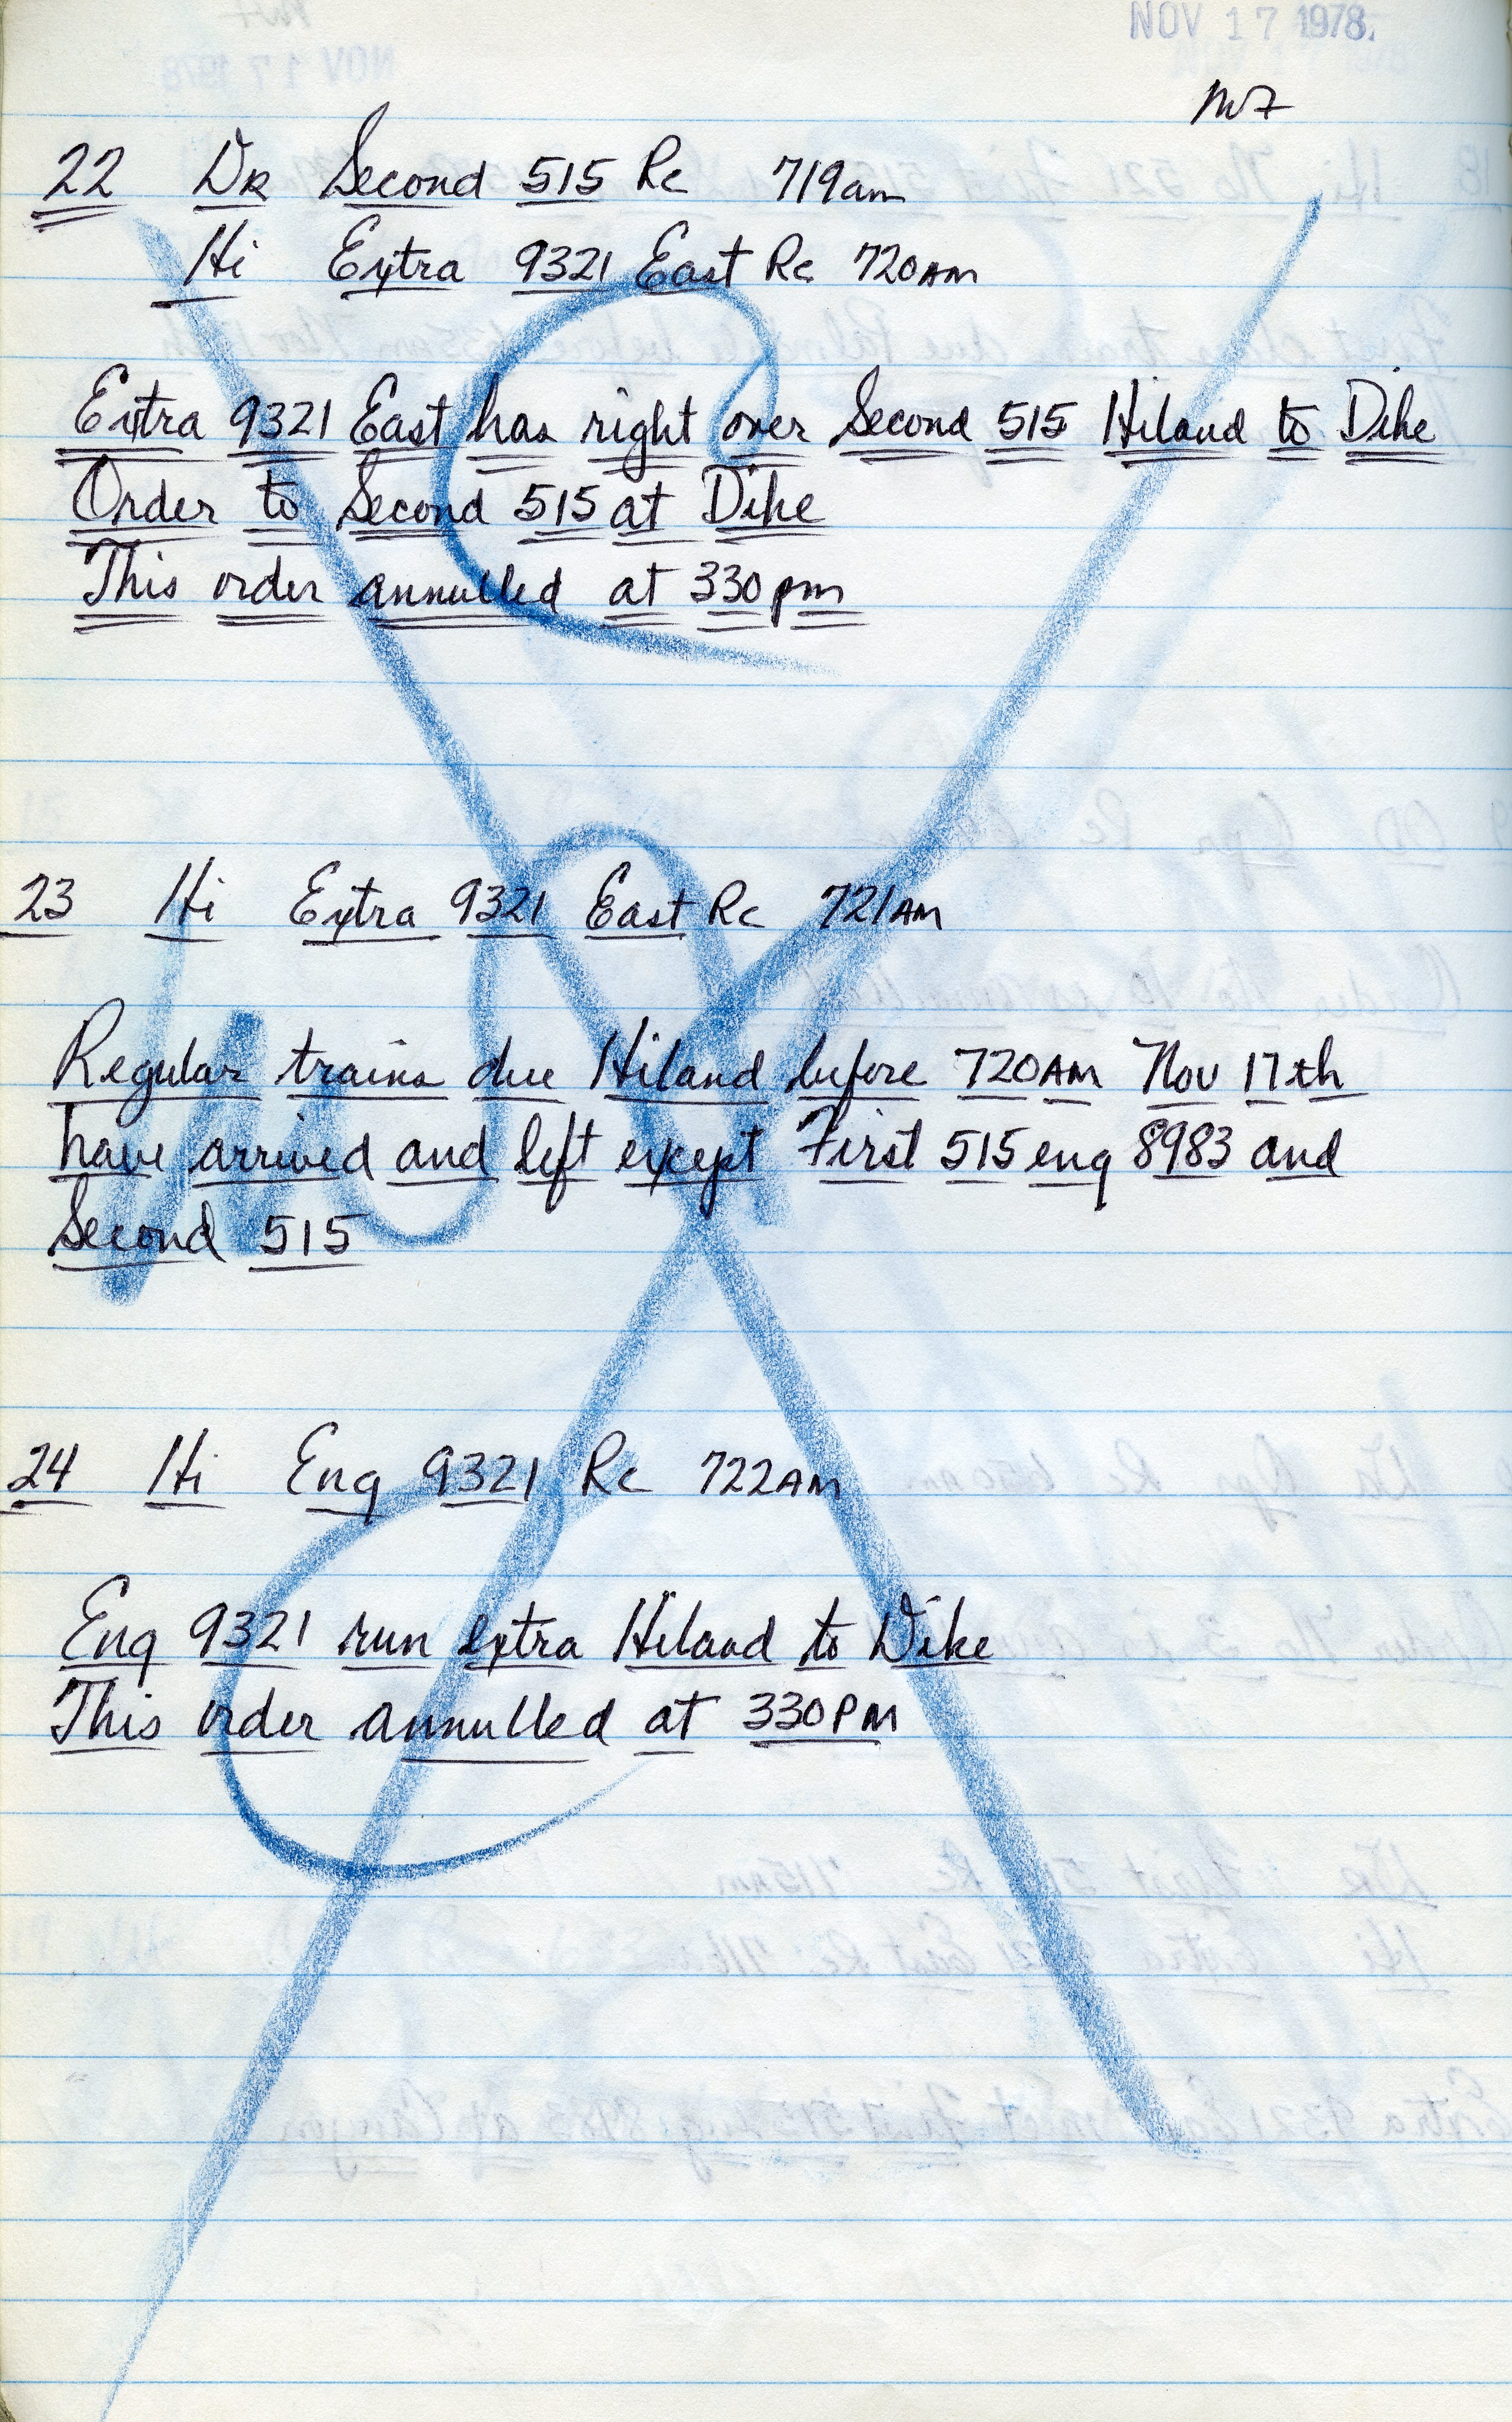 NOV 17 1978
22 DK Second 515 Rc 719am
Hi Extra 9321 East Rc 720AM
Extra 9321 East has right over Second 515 Hiland to Dike
Order to Second 515 at Dike
This order annulled at 330pm
23 Hi Extra 9321 East Rc 721AM
Regular trains due Hiland before 720AM Nov 17th
have arrived and left except First 515 eng 8983 and
Second 515
24 Hi Eng 9321 Rc 722AM
Eng 9321 run extra Hiland to Dike
This order annulled at 330PM